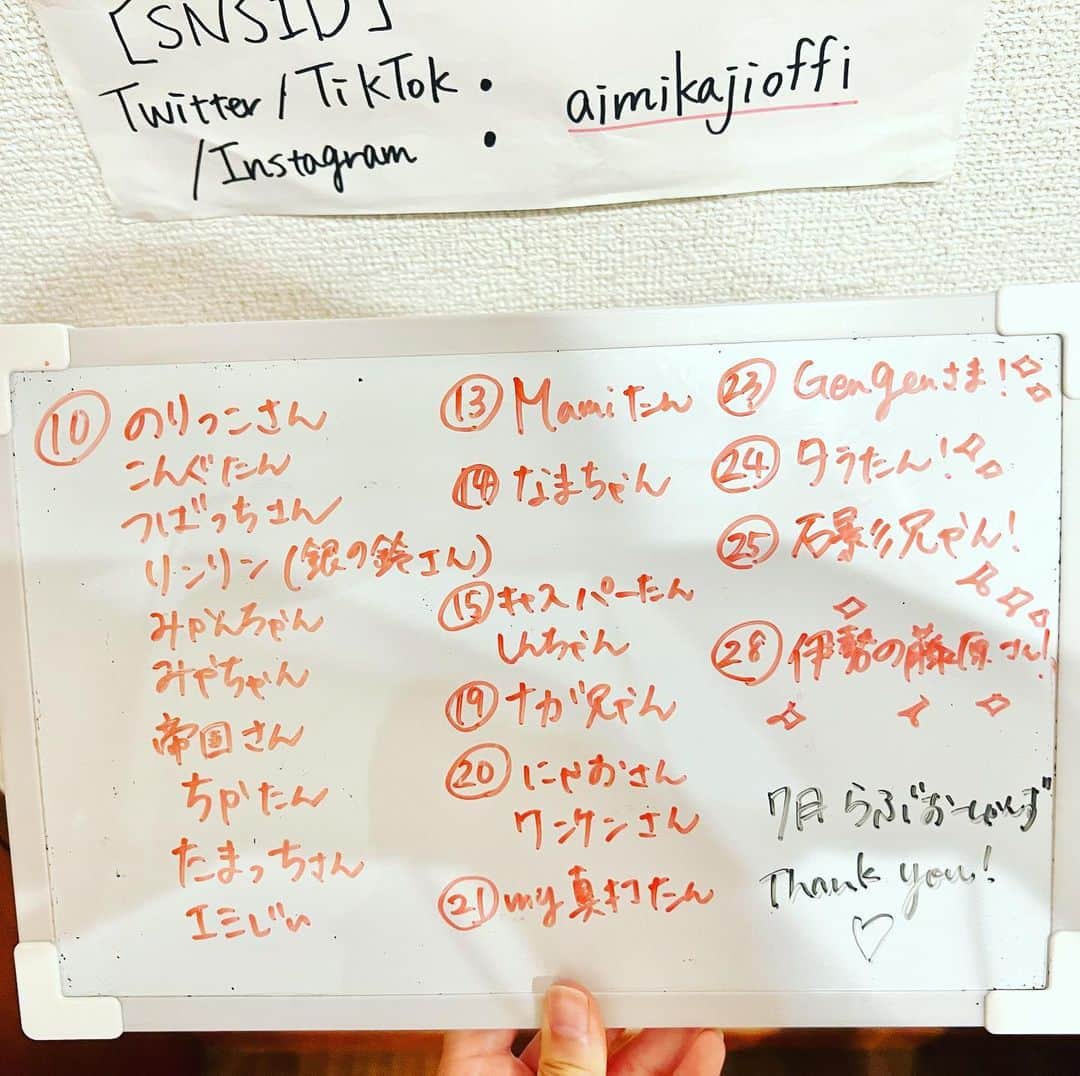 [SNSID]
Twitter/TikTok
/Instagram
:
aimikajioffi
⑩ のりっこさん
こんぐたん
つばっちさん
リンリン(銀の鈴さん)
みかんちゃん
みやちゃん
帝国さん
ちゃたん
たまっちさん
エミじい
⑬ Mamiたん
⑭ なまちゃん
⑮ キャスパーたん
しんちゃん
⑲ ナガ兄やん
⑳ にゃおさん
ワンケンさん
㉑ my真打たん
㉓ Gengenさま!
㉔ タラたん!
㉕ 石影兄やん!
㉘ 伊勢の藤原さん!
7月 らぶおーしゃんず
Thank you!
♡